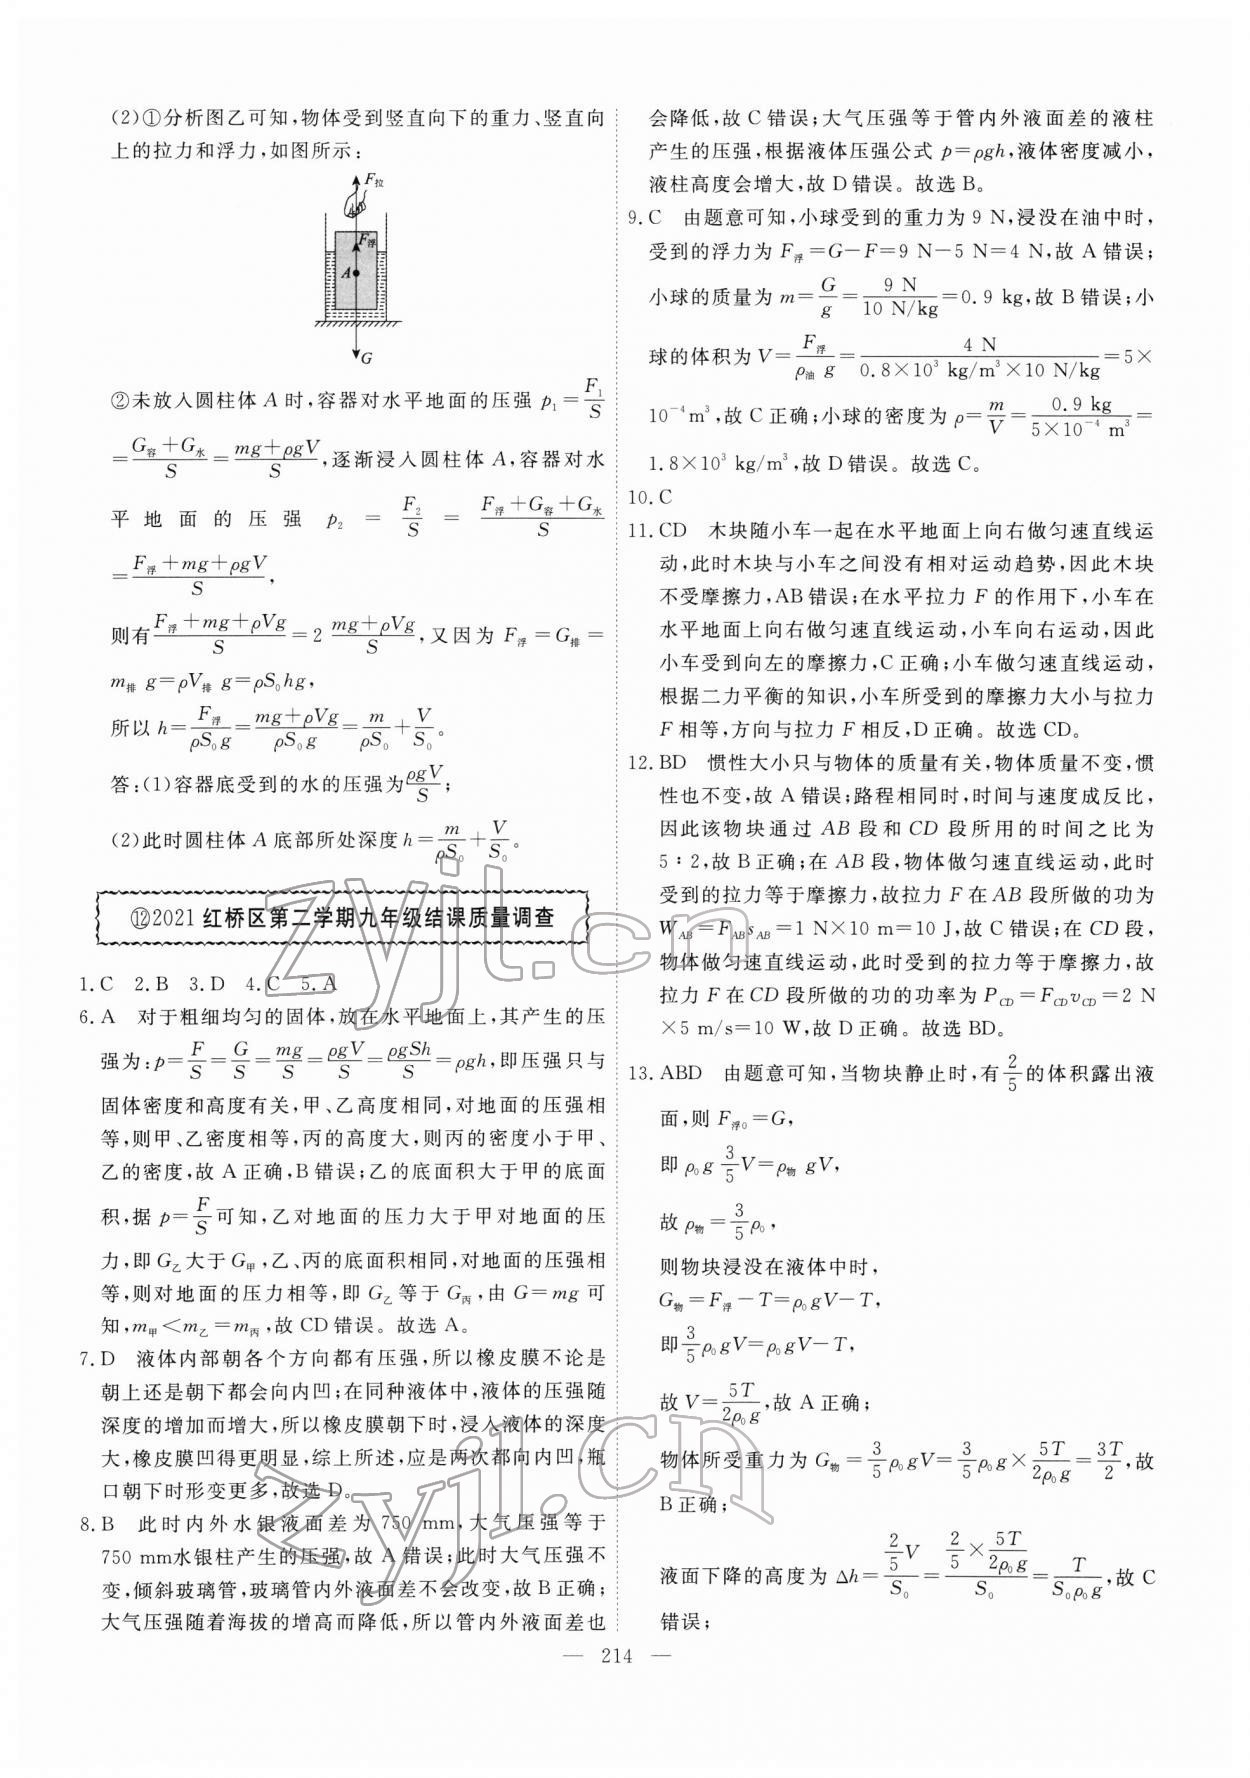 (2)①分析图乙可知,物体受到竖直向下的重力、竖直向
上的拉力和浮力,如图所示:
F拉
F浮
A
G
②未放入圆柱体 A 时,容器对水平地面的压强 p₁=F₁/S
=(G容+G水)/S=(mg+ρgV)/S,逐渐浸入圆柱体 A,容器对水
平地面的压强 p₂ = F₂/S = (F浮+G容+G水)/S
=(F浮+mg+ρgV)/S,
则有(F浮+mg+ρVg)/S=2 (mg+ρVg)/S,又因为 F浮=G排=
m排 g=ρV排 g=ρS₀hg,
所以 h=F浮/(ρS₀g)=(mg+ρVg)/(ρS₀g)=m/(ρS₀)+V/S₀。
答:(1)容器底受到的水的压强为ρgV/S;
(2)此时圆柱体 A 底部所处深度 h=m/(ρS₀)+V/S₀。
⑫2021 红桥区第二学期九年级结课质量调查
1.C 2.B 3.D 4.C 5.A
6.A 对于粗细均匀的固体,放在水平地面上,其产生的压
强为:p=F/S=G/S=mg/S=ρgV/S=ρgSh/S=ρgh,即压强只与
固体密度和高度有关,甲、乙高度相同,对地面的压强相
等,则甲、乙密度相等,丙的高度大,则丙的密度小于甲、
乙的密度,故 A 正确,B 错误;乙的底面积大于甲的底面
积,据 p=F/S可知,乙对地面的压力大于甲对地面的压
力,即 G乙大于 G甲,乙、丙的底面积相同,对地面的压强相
等,则对地面的压力相等,即 G乙等于 G丙,由 G=mg 可
知,m甲<m乙=m丙,故 CD 错误。故选 A。
7.D 液体内部朝各个方向都有压强,所以橡皮膜不论是
朝上还是朝下都会向内凹;在同种液体中,液体的压强随
深度的增加而增大,所以橡皮膜朝下时,浸入液体的深度
大,橡皮膜凹得更明显,综上所述,应是两次都向内凹,瓶
口朝下时形变更多,故选 D。
8.B 此时内外水银液面差为 750 mm,大气压强等于
750 mm水银柱产生的压强,故 A 错误;此时大气压强不
变,倾斜玻璃管,玻璃管内外液面差不会改变,故 B 正确;
大气压强随着海拔的增高而降低,所以管内外液面差也
会降低,故 C 错误;大气压强等于管内外液面差的液柱
产生的压强,根据液体压强公式 p=ρgh,液体密度减小,
液柱高度会增大,故 D 错误。故选 B。
9.C 由题意可知,小球受到的重力为 9 N,浸没在油中时,
受到的浮力为 F浮=G−F=9 N−5 N=4 N,故 A 错误;
小球的质量为 m=G/g=9 N/(10 N/kg)=0.9 kg,故 B 错误;小
球的体积为 V=F浮/(ρ油 g)=4 N/(0.8×10³ kg/m³×10 N/kg)=5×
10⁻⁴m³,故 C 正确;小球的密度为 ρ=m/V=0.9 kg/(5×10⁻⁴ m³)=
1.8×10³ kg/m³,故 D 错误。故选 C。
10.C
11.CD 木块随小车一起在水平地面上向右做匀速直线运
动,此时木块与小车之间没有相对运动趋势,因此木块
不受摩擦力,AB 错误;在水平拉力 F 的作用下,小车在
水平地面上向右做匀速直线运动,小车向右运动,因此
小车受到向左的摩擦力,C 正确;小车做匀速直线运动,
根据二力平衡的知识,小车所受到的摩擦力大小与拉力
F 相等,方向与拉力 F 相反,D 正确。故选 CD。
12.BD 惯性大小只与物体的质量有关,物体质量不变,惯
性也不变,故 A 错误;路程相同时,时间与速度成反比,
因此该物块通过 AB 段和 CD 段所用的时间之比为
5∶2,故 B 正确;在 AB 段,物体做匀速直线运动,此时
受到的拉力等于摩擦力,故拉力 F 在 AB 段所做的功为
W_AB=F_AB s_AB=1 N×10 m=10 J,故 C 错误;在 CD 段,
物体做匀速直线运动,此时受到的拉力等于摩擦力,故
拉力 F 在 CD 段所做的功的功率为 P_CD=F_CD v_CD=2 N
×5 m/s=10 W,故 D 正确。故选 BD。
13.ABD 由题意可知,当物块静止时,有2/5的体积露出液
面,则 F浮₀=G,
即 ρ₀g 3/5V=ρ物 gV,
故 ρ物=3/5ρ₀,
则物块浸没在液体中时,
G物=F浮−T=ρ₀gV−T,
即3/5ρ₀gV=ρ₀gV−T,
故 V=5T/(2ρ₀g),故 A 正确;
物体所受重力为 G物=3/5ρ₀gV=3/5ρ₀g×5T/(2ρ₀g)=3T/2,故
B 正确;
液面下降的高度为 Δh=(2/5V)/S₀=(2/5×5T/(2ρ₀g))/S₀=T/(S₀ρ₀g),故 C
错误;
— 214 —
zyjl.cn
zyjl.cn